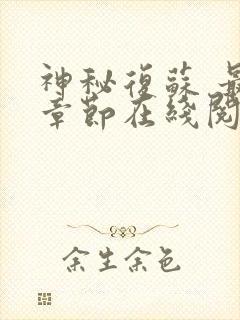 神秘復蘇 最
章節在綫閱
余生余色